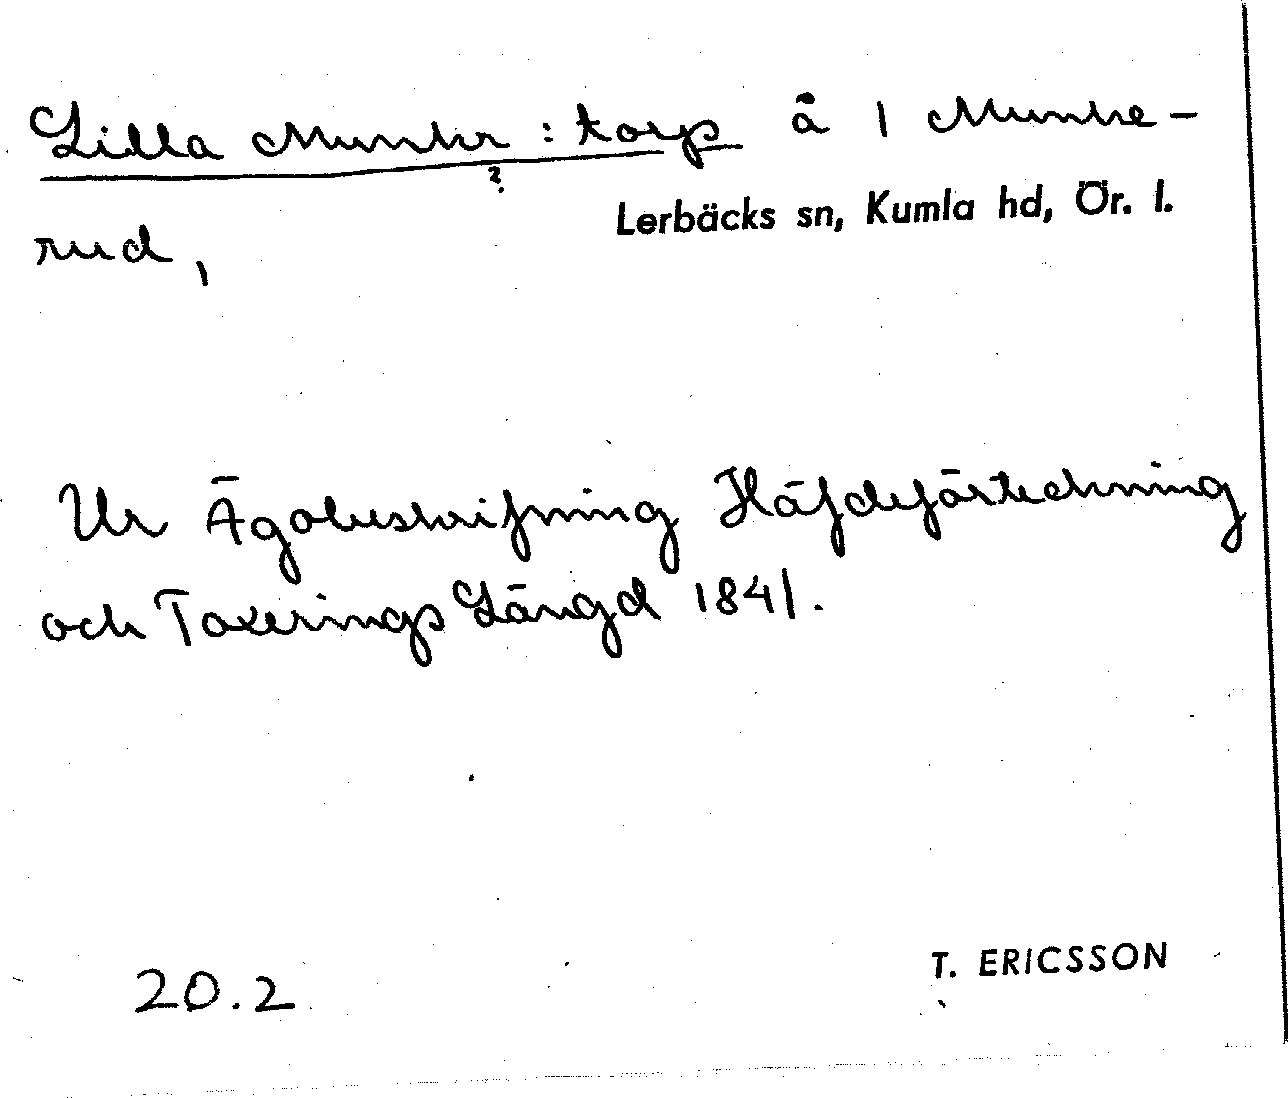 Lilla Munkr : torp å 1 Munke-
?
Lerbäcks sn, Kumla hd, Ör. l.
rud,
Ur Ägobeskrifning Häfdeförteckning
och Taxerings Längd 1841.
20.2
T. ERICSSON